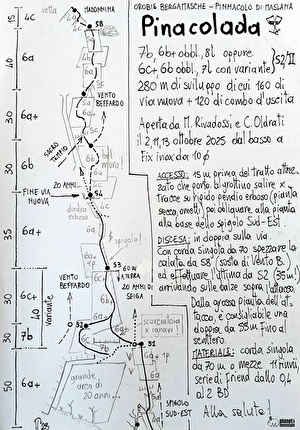 OROBIE BERGAMASCHE - PINNACOLO DI MASLANA
Pinacolada
7b, 6b+ obbl., 8l oppure
6c+ 6b obbl., 7L con variante
S2/II
280 m di sviluppo di cui 160 di
via nuova + 120 di combo d'uscita
Aperta da M. Rivadossi e C. Oldrati
il 2, 11, 13 ottobre 2025 dal basso a
Fix inox da 10 ø
ACCESSO: 15 m prima del tratto attrez
zato che porta al grottino salire x
tracce su ripido pendio erboso (pianta
secca, ometti) poi obliquare alla pianta
alla base dello spigolo Sud-Est
DISCESA: in doppia sulla via
Con corda singola da 70 spezzare la
calata da S8 sosta di Vento B.
ed effettuare l'ultima da S2 (35m!)
arrivando sulle balze sopra l'attacco.
Dalla grossa pianta dell'at
tacco, è consigliabile una
doppia da 35m fino al
sentiero.
MATERIALE: corda singola
da 70 m o mezze, 11 rinvii,
serie di Friend dallo 0,4
al 2 BD
Alla salute!
vetta
MADONNINA
S8
15
4c
4c
40
6a
6a
VENTO
BEFFARDO
5a
5c
30
6a+
SACRO
TEMPIO
6a
6b
30
6b
bel
muro!
FINE VIA
NUOVA
20 ANNI...
S4
diedro
erboso
35
6a+
6a
spigolo!
S3
60 m
A TERRA
20 ANNI DI
SFIGA
VENTO
BEFFARDO
30
6c+
40
Variante
6c
S2
6a+
scorciatoia
x gnavi!
30
7b
7b
S1
6a+ 1p
50
6a+
grande
arco di
20 anni...
SPIGOLO
SUD-EST
planetmountain